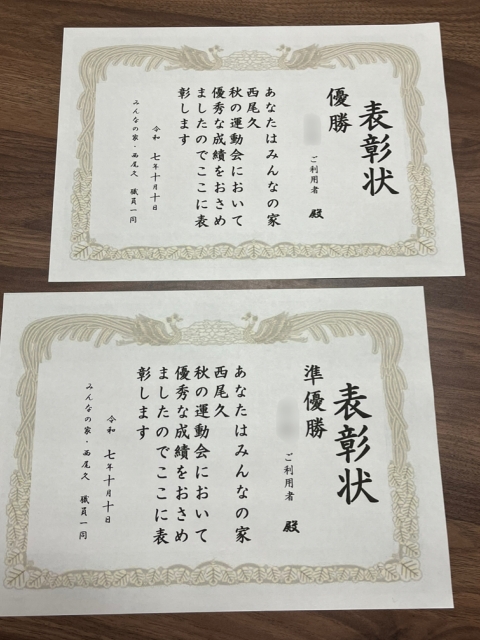 表彰状
優勝
ご利用者 殿
あなたはみんなの家
西尾久
秋の運動会において
優秀な成績をおさめ
ましたのでここに表
彰します
令和 七年十月十日
みんなの家・西尾久 職員一同
表彰状
準優勝
ご利用者 殿
あなたはみんなの家
西尾久
秋の運動会において
優秀な成績をおさめ
ましたのでここに表
彰します
令和 七年十月十日
みんなの家・西尾久 職員一同